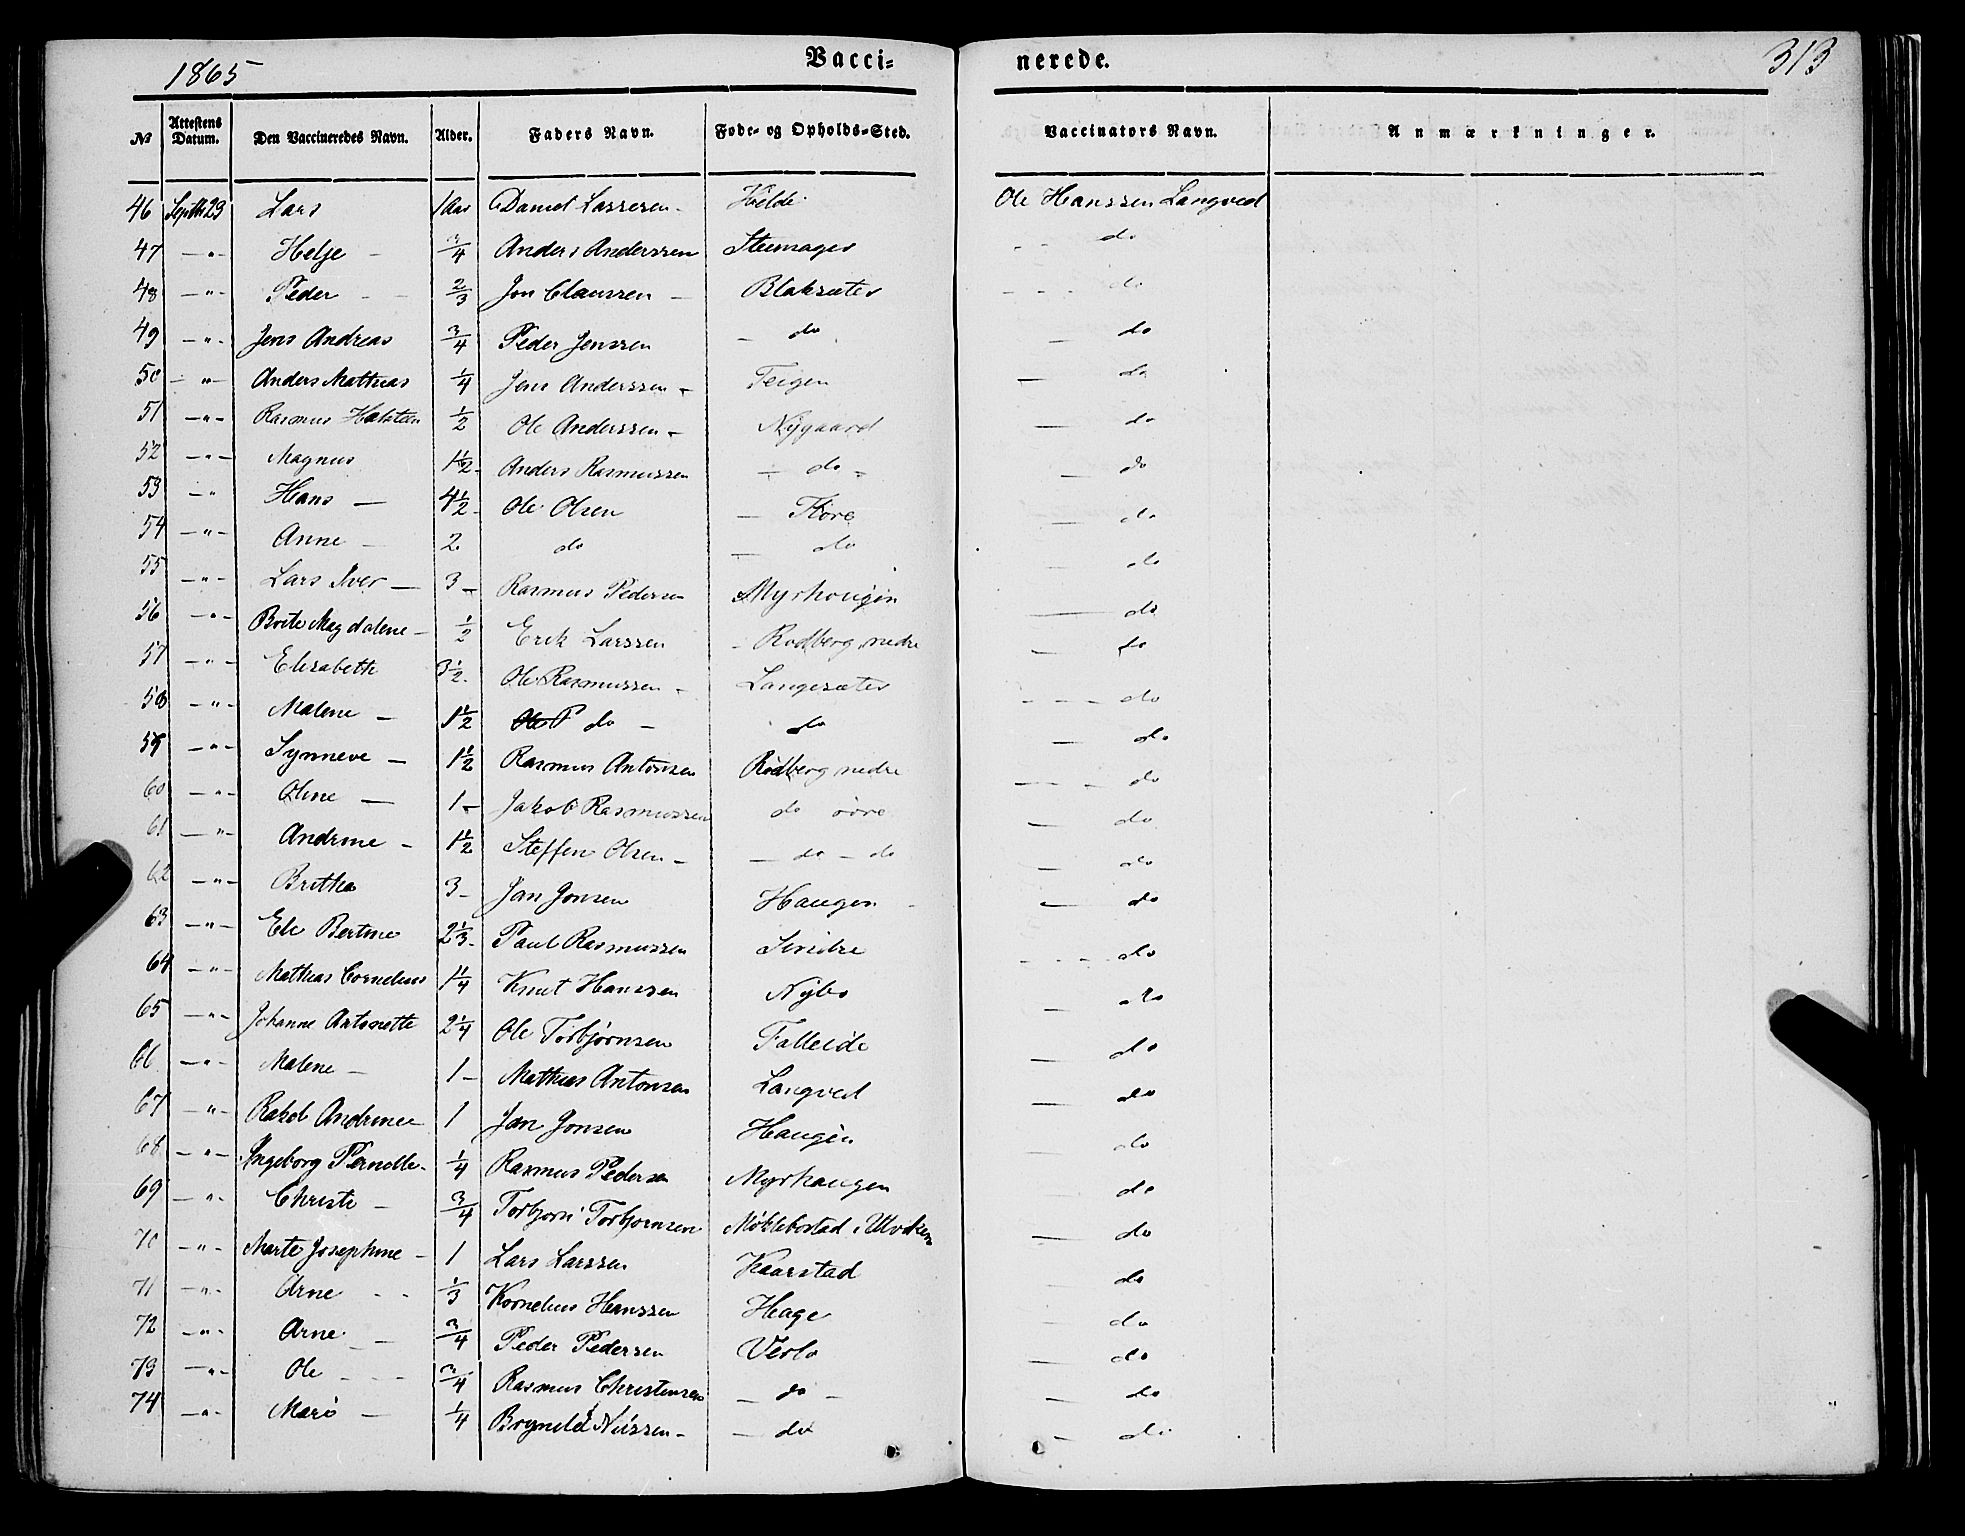 1865 Vacci= nerede. 313
№ Attestens Datum. Den Vaccineredes Navn. Alder. Faders Navn. Føde- og Opholds-Sted. Vaccinators Navn. Anmærkninger.
46 Septb 29 Lars 1 Aar Daniel Larssen - Hilde Ole Hanssen Langved
47 — " - Helje - 3/4 Anders Anderssen do
48 — " - Peder - 2/3 Jon Claussen - Blaksæter do
49 — " - Jens Andreas 3/4 Peder Jenssen — do — do
50 — " — Anders Mathias 1/4 Jens Anderssen - Teigen — do
51 — " - Rasmus 1/2 Ole Anderssen - Nygaard — do
52 — " - Magnus 1 1/2 - Anders Rasmussen — do - — do
53 — " Hans — 4 1/2 - Ole Olsen — Flore — do
54 — " - Anne - 2 do — do — do
55 — " - Lars Iver — 3 - Rasmus Pedersen Myrhougen — do
56 — " - Brite Magdalene - 1/2 Erik Larssen - Rødberg nedre — do
57 — " - Elisabeth 3 1/2 - Ole Rasmussen - Langesæter — do
58 — " - Malene — 1 1/2 do — do - - - do
59 — " - Synneve — 1 1/2 Rasmus Antonsen Rødberg nedre — do
60 — " - Oline — 1 - Jakob Rasmussen do øvre — do
61 — " - Andrine - 1 1/2 Steffen Olsen - — do - do — do
62 — " - Britha 3 - Jan Jonsen Haugen — do
63 — " - Eli Bertine 2 1/3 - Paul Rasmussen Sindre — do
64 — " - Mathias Cornelius 1 1/4 Knut Hanssen Nybo — do
65 — " - Johanne Antonette 2 1/4 Ole Torbjørnsen Falleide — do
66 — " - Malene — 1 - Mathias Antonsen Langved — do
67 — " - Rakel Andrine 1 Jan Jonsen Haugen — do
68 — " - Ingeborg Pernelle - 1/4 Rasmus Pedersen Myrhaugen — do
69 — " - Christi - 3/4 Torbjørn Torbjørnsen Møklebostad i Utviken — do
70 — " - Marte Josephine - 1 Lars Larssen Kaarstad — do
71 — " - Arne - - 1/3 Kornelius Hanssen Hage — do
72 — " - Arne — 3/4 Peder Pederssen Verlo — do
73 — " - Ole - - - 3/4 Rasmus Christensen — do - — do
74 — " - Mari — 1/4 Bryneld Nilssen - — do — do